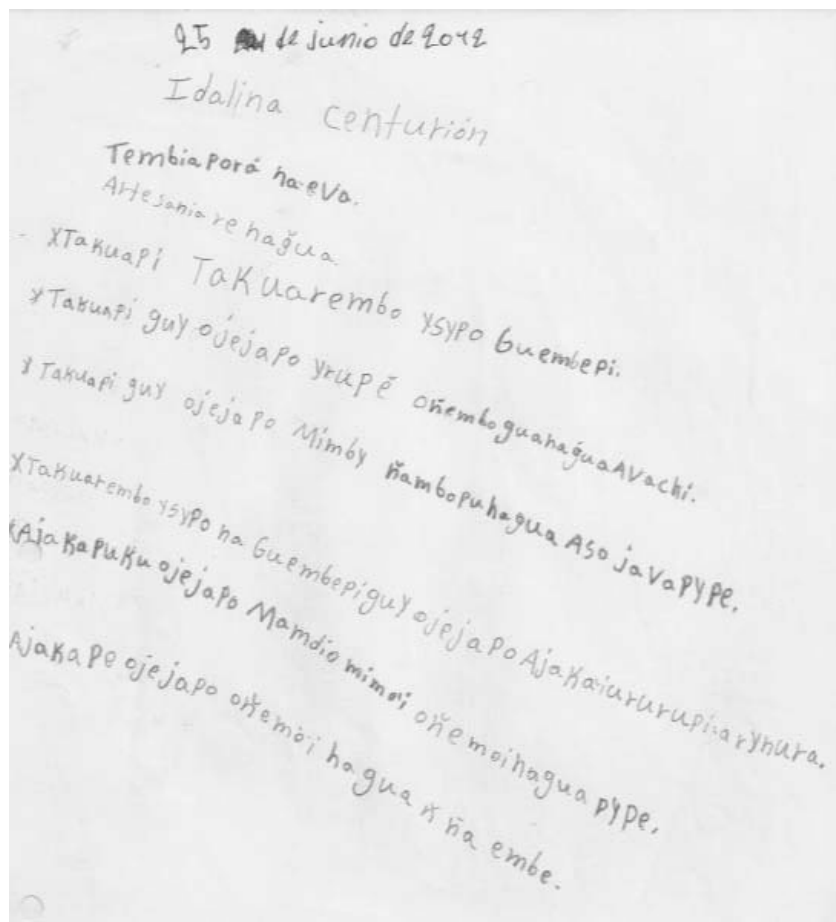 25 de junio de 2012
Idalina Centurión
Tembiaporá ha-eva.
Artesania re hağua.
xTakuapi Takuarembo ysypo Guembepi.
xTakuapi guy ojejapo yrupẽ oñemboguahağua Avachi.
xTakuapi guy ojejapo Mimby ñambopuhagua Aso java pype.
xTakuarembo ysypo ha Guembepi guy ojejapo Ajaka
xAjaka puku ojejapo Mamdio mimoi oñemoihagua pype.
Ajaka pe ojejapo oñemoi hagua ña embe.